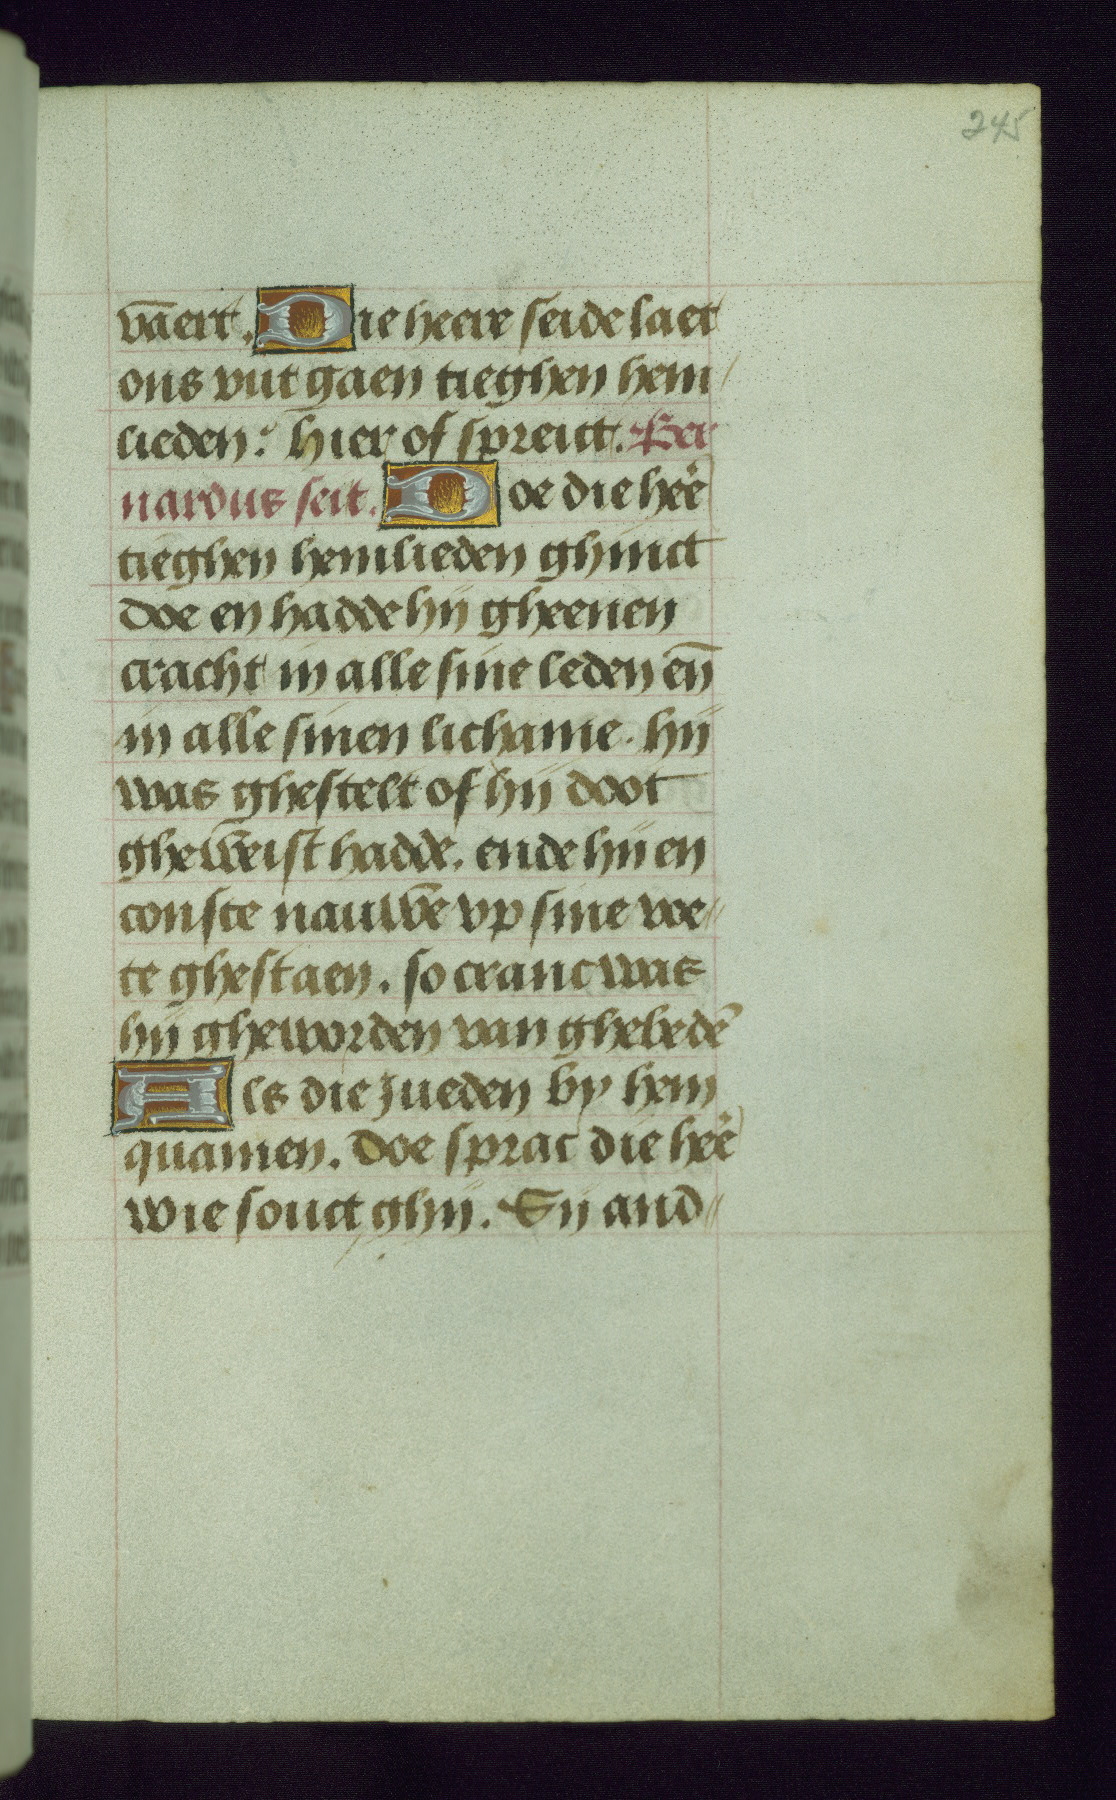 245
vāert. Die heere seide laet
ons vut gaen tieghen hem/
lieden: hier of spreict. Ber
nardus seit. Doe die heē
tieghen hemlieden ghinct
doe en hadde hij gheenen
cracht in alle sine leden eñ
in alle sinen lichame. hij
was ghestelt of hij doot
gheweist hadde. ende hij en
conste nauwe vp sine voe//
te ghestaen. so cranc was
hij gheworden van ghebedē
Als die Jueden by hem
quamen. Doe sprac die heē
wie souct ghij. Sij and//